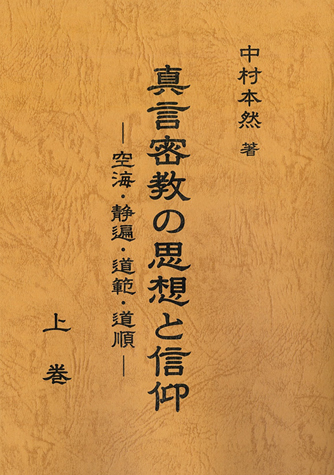 中村本然 著
真言密教の思想と信仰
―空海・静遍・道範・道順―
上巻